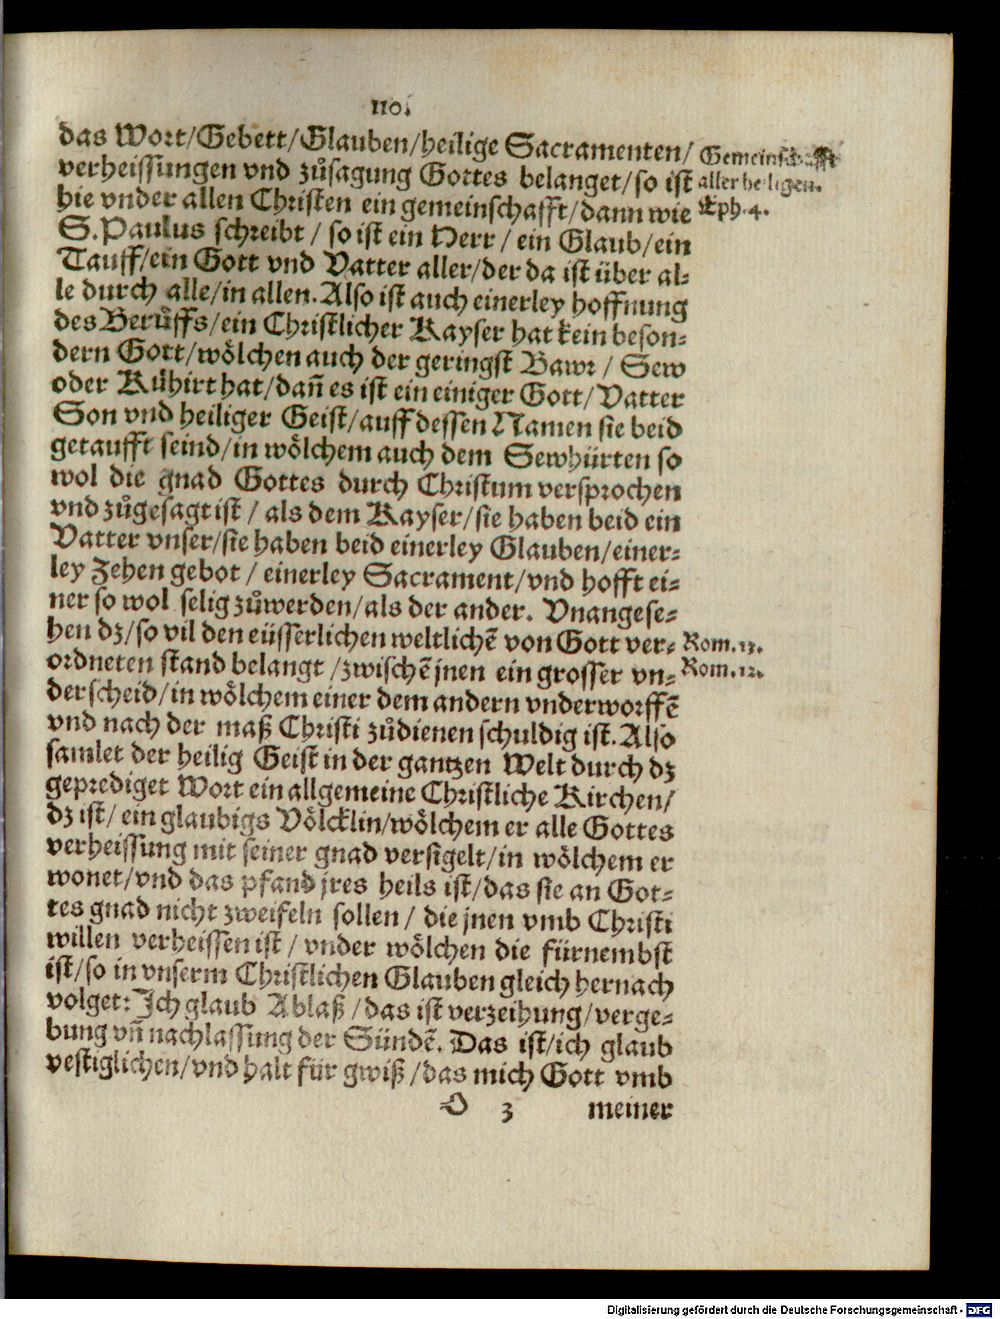 110.
das Wort/Gebett/Glauben/heilige Sacramenten/
verheissungen vnd zůsagung Gottes belanget/so ist
hie vnder allen Christen ein gemeinschafft/dann wie
S. Paulus schreibt / so ist ein Herr / ein Glaub/ein
Tauff/ein Gott vnd Vatter aller/der da ist über al-
le durch alle/in allen. Also ist auch einerley hoffnung
des Berůffs/ein Christlicher Kayser hat kein beson-
dern Gott/wölchen auch der geringst Bawr / Sew
oder Kůhirt hat/dañ es ist ein einiger Gott/Vatter
Son vnd heiliger Geist/auff dessen Namen sie beid
getaufft seind/in wölchem auch dem Sewhürten so
wol die gnad Gottes durch Christum versprochen
vnd zůgesagt ist / als dem Kayser/sie haben beid ein
Vatter vnser/sie haben beid einerley Glauben/einer-
ley Zehen gebot / einerley Sacrament/vnd hofft ei-
ner so wol selig zůwerden/als der ander. Vnangese-
hen dz/so vil den eüsserlichen weltlichẽ von Gott ver-
ordneten stand belangt /zwischẽ jnen ein grosser vn-
derscheid/in wölchem einer dem andern vnderworffẽ
vnd nach der maß Christi zůdienen schuldig ist. Also
samlet der heilig Geist in der gantzen Welt durch dz
geprediget Wort ein allgemeine Christliche Kirchen/
dz ist/ ein glaubigs Völcklin/wölchem er alle Gottes
verheissung mit seiner gnad versigelt/in wölchem er
wonet/vnd das pfand jres heils ist/das sie an Got-
tes gnad nicht zweifeln sollen / die jnen vmb Christi
willen verheissen ist / vnder wölchen die fürnembst
ist/so in vnserm Christlichen Glauben gleich hernach
volget: Ich glaub Ablaß /das ist verzeihung/verge-
bung vñ nachlassung der Sündẽ. Das ist/ich glaub
vestiglichen/vnd halt für gwiß /das mich Gott vmb
O 3 meiner
Gemeinschafft
aller heiligen.
Eph. 4.
Rom. 13.
Rom. 12.
Digitalisierung gefördert durch die Deutsche Forschungsgemeinschaft - DFG